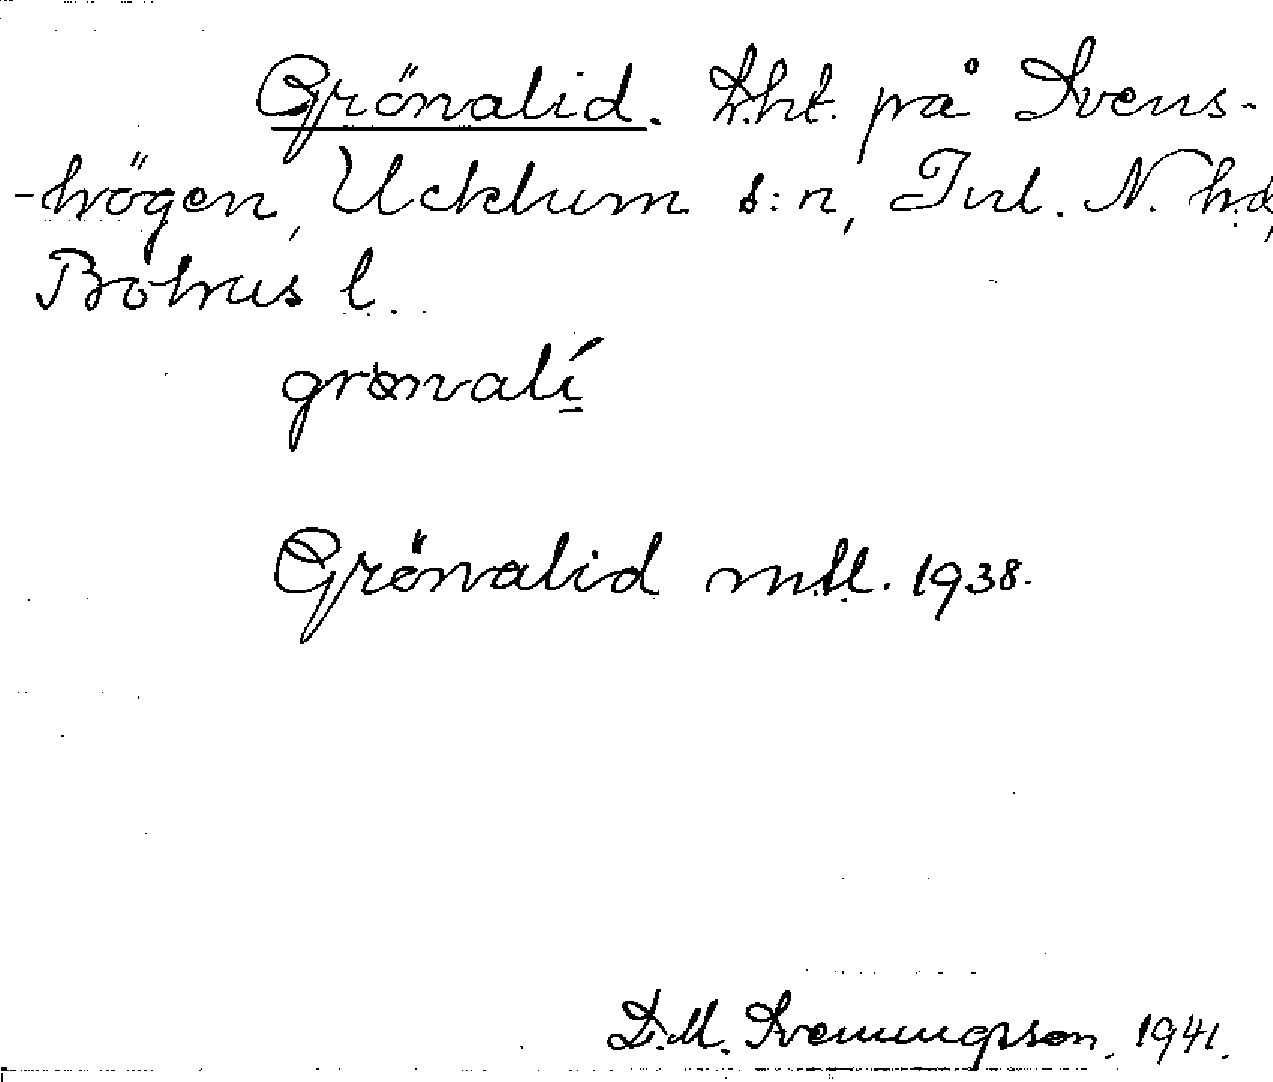 Grönalid. Lht. på Svens-
-högen, Ucklum s:n, Inl. N. hd,
Bohus l.
grønalí
Grönalid mtl. 1938.
D.M. Svenungsson, 1941.